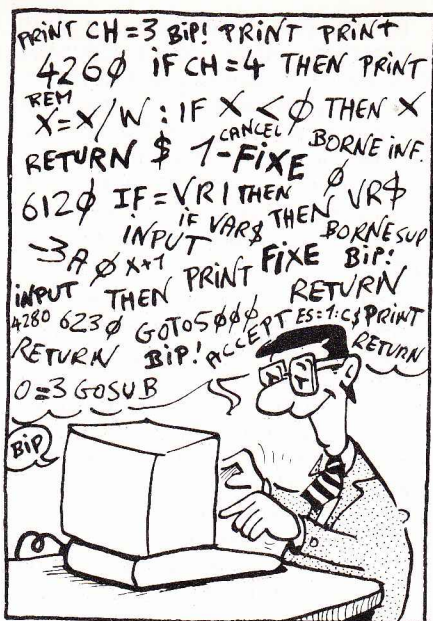 PRINT CH=3 BiP! PRINT PRINT
426Ø iF CH=4 THEN PRINT
REM
X=X/W : IF X<Ø THEN X
CANCEL
RETURN $ 1-FiXE BORNE iNF.
Ø
612Ø IF=VR1THEN VR$
iF VAR$ THEN
-3A Ø X+1 INPUT FiXE BORNESUP
iNPUT THEN PRINT BiP!
RETURN
4280 623Ø GOTO5ØØØ ACCEPT ES=1:C$PRINT
RETURN BiP! RETURN
0=3 GOSUB
BiP